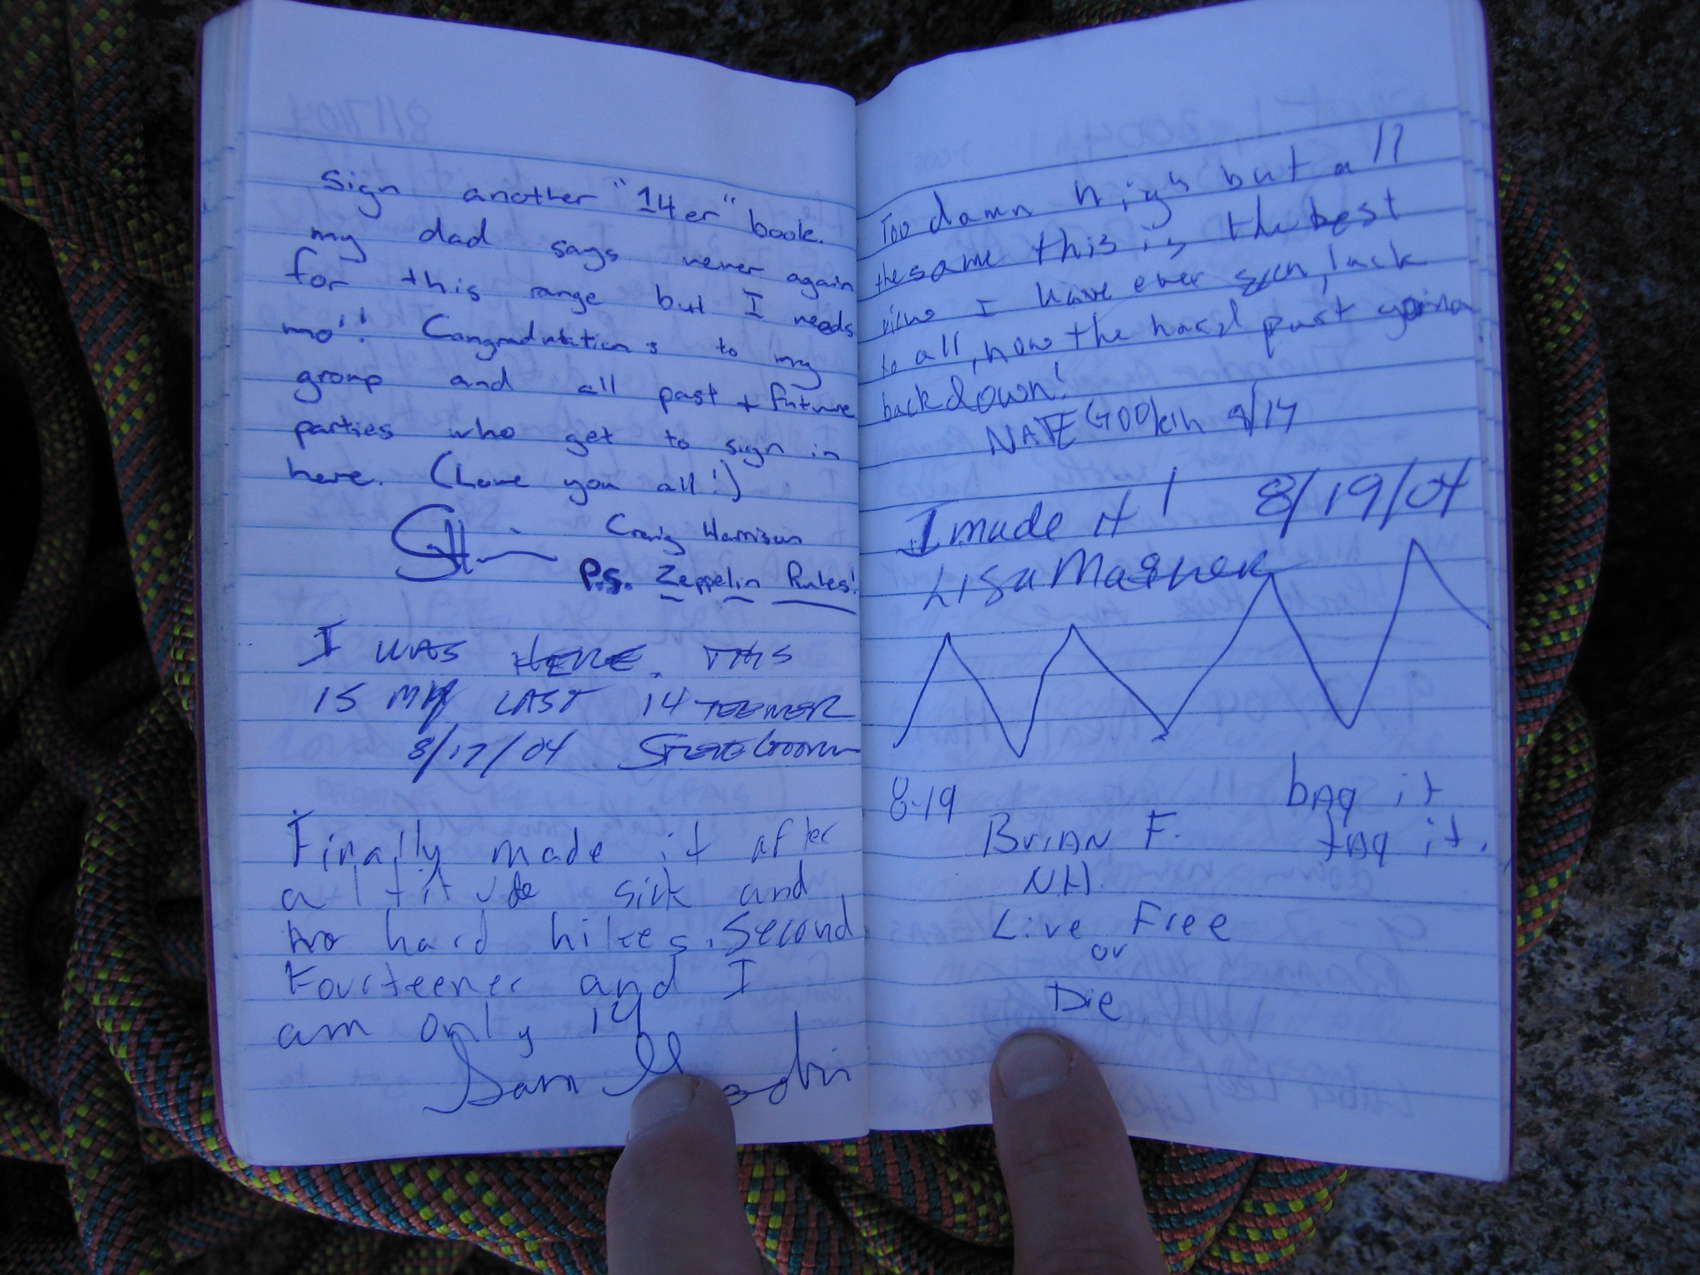 Sign another "14er" book.
my dad says never again
for this range but I needs
mo!! Congradulations to my
group and all past + future
parties who get to sign in
here. (Love you all!)
Craig Harrison
P.S. Zeppelin Rules!
I WAS HERE. THIS
IS MY LAST 14 TEENER
8/17/04
Finally made it after
altitude sick and
two hard hikes. Second
Fourteener and I
am only 14
Sam
Too damn high but all
the same this is the best
view I have ever seen, luck
to all, now the hard part going
back down!
NATE GOOkin 8/17
I made it! 8/19/04
Lisa
8-19
bAg it
BriAN F. tAg it.
NH
Live Free
or
Die